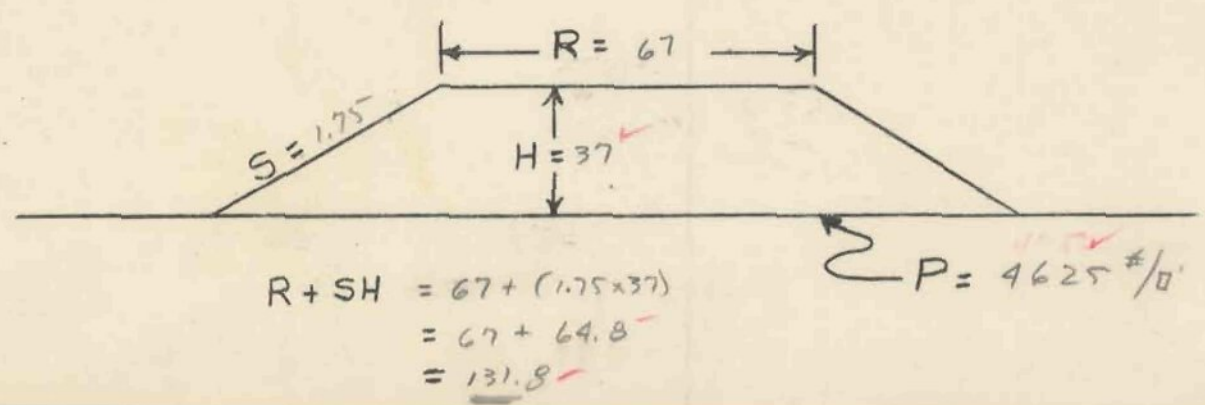 R = 67
S = 1.75
H = 37
P = 4625 #/□'
R + SH = 67 + (1.75x37)
= 67 + 64.8
= 131.8